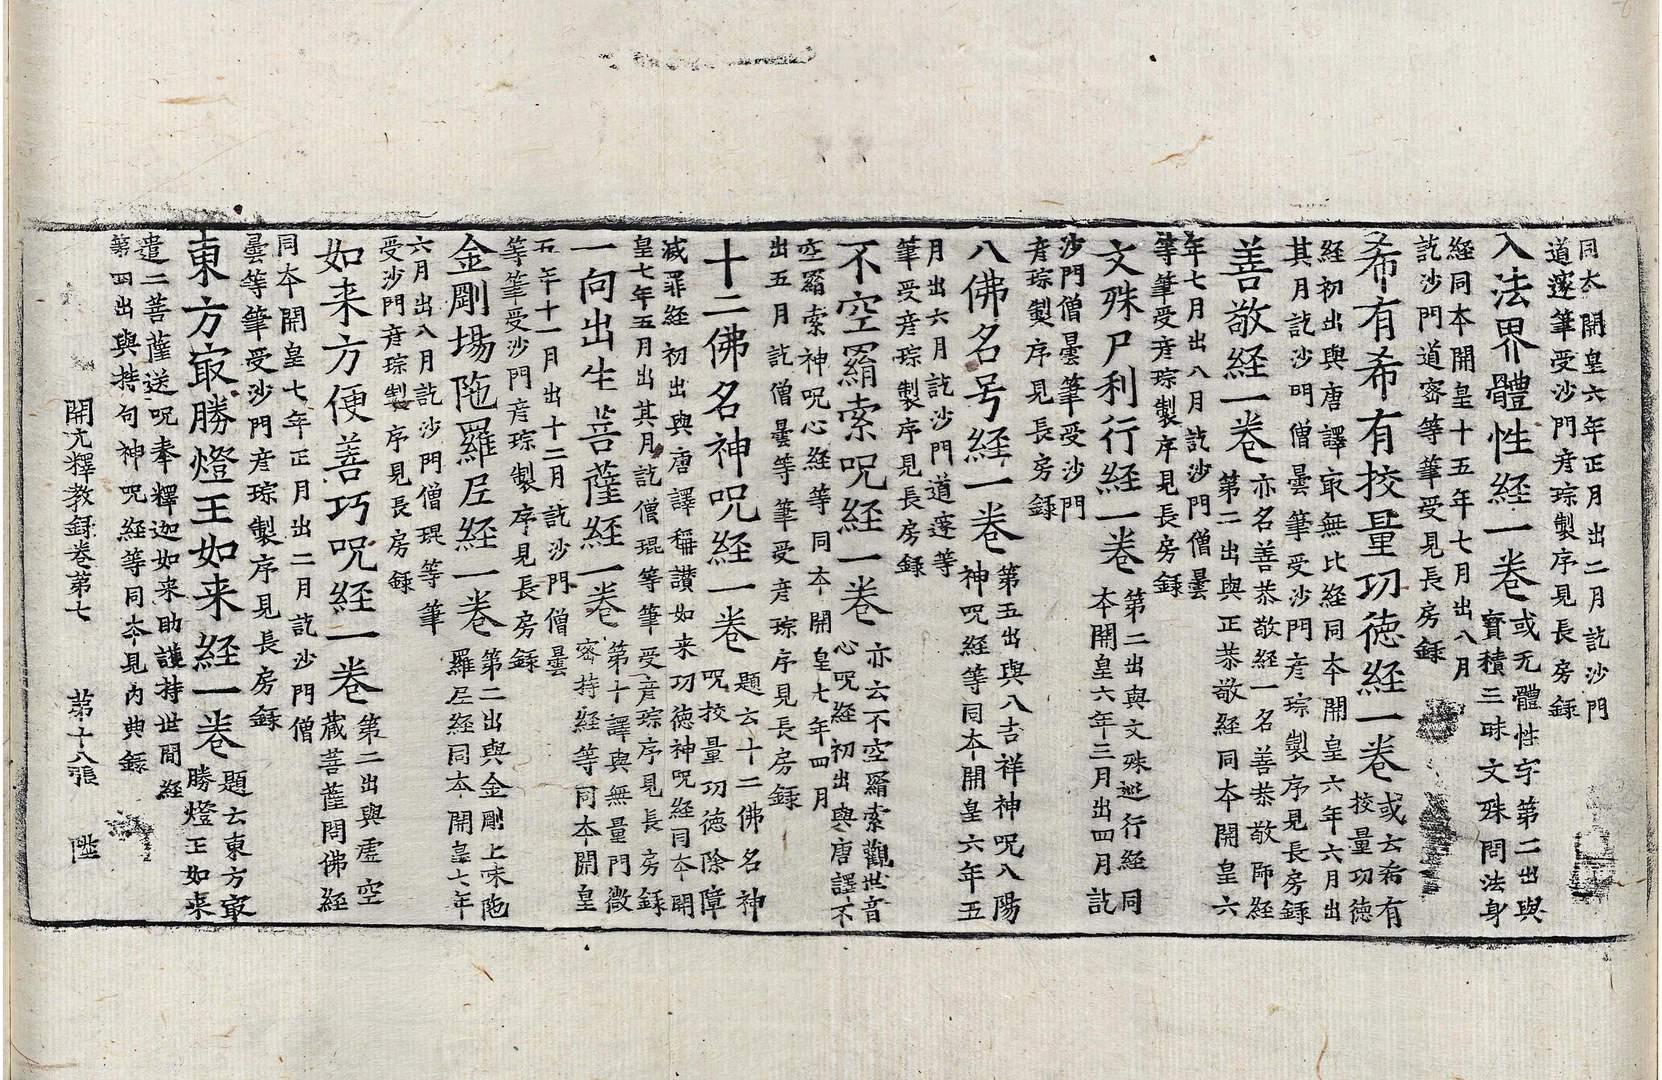 同本開皇六年正月出二月訖沙門
道邃筆受沙門彦琮製序見長房錄
入法界體性経一卷
或无體性字第二出與
寳積三昧文殊問法身
経同本開皇十五年七月出八月
訖沙門道密等筆受見長房錄
希有希有挍量功德経一卷
或去希有
挍量功德
経初出與唐譯㝡無比経同本開皇六年六月出
其月訖沙門僧曇筆受沙門彦琮製序見長房錄
善敬経一卷
亦名善恭敬経一名善恭敬師経
第二出與正恭敬経同本開皇六
年七月出八月訖沙門僧曇
等筆受彦琮製序見長房錄
文殊尸利行経一卷
第二出與文殊巡行経同
本開皇六年三月出四月訖
沙門僧曇筆受沙門
彦琮製序見長房錄
八佛名号経一卷
第五出與八吉祥神呪八陽
神呪経等同本開皇六年五
月出六月訖沙門道邃等
筆受彦琮製序見長房錄
不空羂索呪経一卷
亦云不空羂索觀世音
心呪経初出與唐譯不
空羂索神呪心経等同本開皇七年四月
出五月訖僧曇等筆受彦琮序見長房錄
十二佛名神呪経一卷
題云十二佛名神
呪挍量功德除障
滅罪経初出與唐譯稱讃如来功德神呪経同本開
皇七年五月出其月訖僧琨等筆受彦琮序見長房錄
一向出生菩薩経一卷
第十譯與無量門微
密持経等同本開皇
五年十一月出十二月訖沙門僧曇
等筆受沙門彦琮製序見長房錄
金剛場陁羅尼経一卷
第二出與金剛上味陁
羅尼経同本開皇七年
六月出八月訖沙門僧琨等筆
受沙門彦琮製序見長房錄
如来方便善巧呪経一卷
第二出與虚空
藏菩薩問佛経
同本開皇七年正月出二月訖沙門僧
曇等筆受沙門彦琮製序見長房錄
東方㝡勝燈王如来経一卷
題云東方㝡
勝燈王如来
遣二菩薩送呪奉釋迦如来助護持世間経
第四出與持句神呪経等同本見内典錄
開元釋教錄卷第七 第十八張 陞